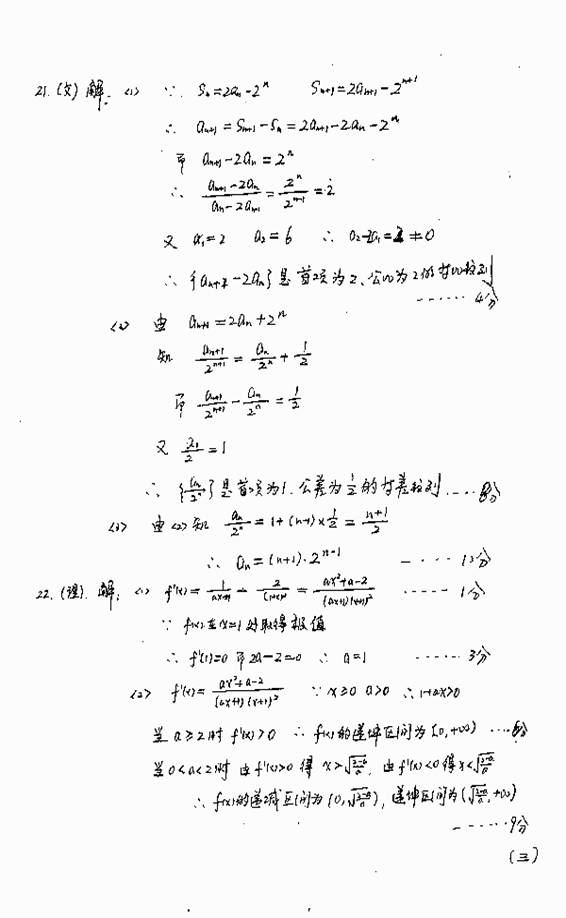 21.(文) 解: (1) ∵ Sn=2an-2^n Sn+1=2an+1-2^(n+1)
∴ an+1=Sn+1-Sn=2an+1-2an-2^n
即 an+1-2an=2^n
∴ (an+1-2an)/(an-2an-1)=2^n/2^(n-1)=2
又 a1=2 a2=6 ∴ a2-2a1=2≠0
∴ {an+1-2an}是首项为2、公比为2的等比数列
······ 4分
(2) 由 an+1=2an+2^n
知 an+1/2^(n+1)=an/2^n+1/2
即 an+1/2^(n+1)-an/2^n=1/2
又 a1/2=1
∴ {an/2^n}是首项为1.公差为1/2的等差数列 ····8分
(3) 由(2)知 an/2^n=1+(n-1)×1/2=(n+1)/2
∴ an=(n+1)·2^(n-1) ····· 13分
22.(理).解: (1) f'(x)=a/(ax+1)-2/(1+x)^2=(ax^2+a-2)/((ax+1)(1+x)^2) ····· 1分
∵ f(x)在x=1处取得极值
∴ f'(1)=0 即2a-2=0 ∴ a=1 ······ 3分
(2) f'(x)=(ax^2+a-2)/((ax+1)(x+1)^2) ∵x≥0 a>0 ∴1+ax>0
当a≥2时 f'(x)>0 ∴ f(x)的递增区间为[0,+∞) ···6分
当0<a<2时 由f'(x)>0得 x>√((2-a)/a), 由f'(x)<0得x<√((2-a)/a)
∴ f(x)的递减区间为(0,√((2-a)/a)), 递增区间为(√((2-a)/a),+∞)
······9分
(三)